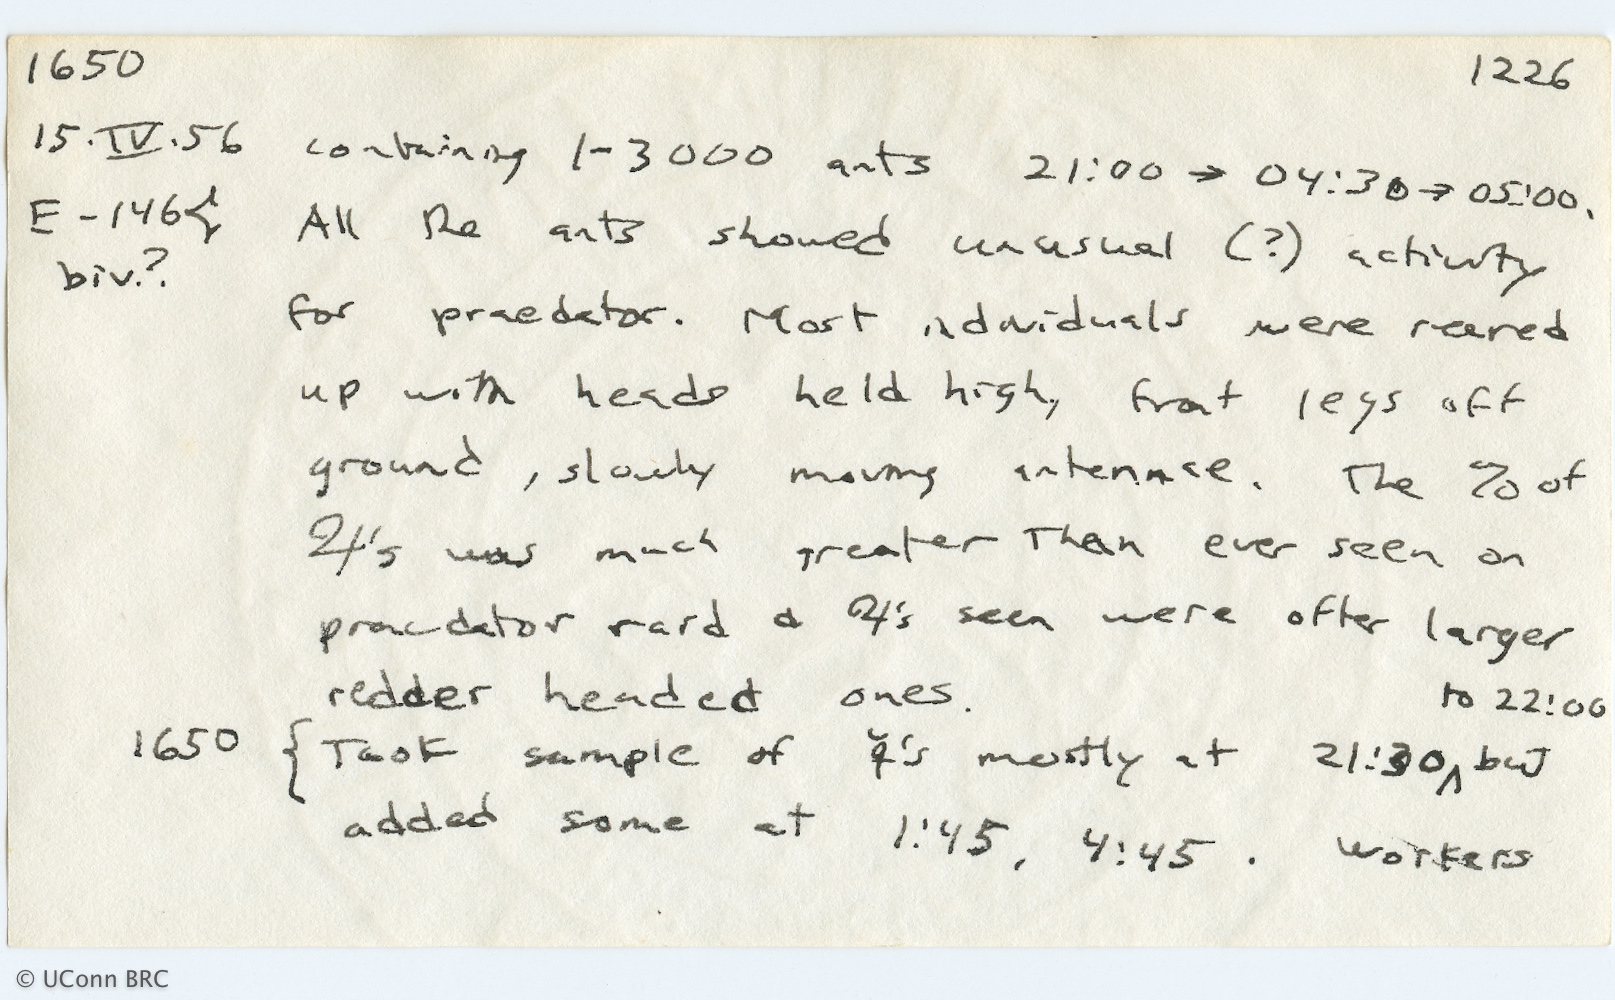 1650 1226
15.IV.56 containing 1-3000 ants 21:00 → 04:30 → 05:00.
E-146 { All the ants showed unusual (?) activity
biv.?
for praedator. Most individuals were reared
up with heads held high, front legs off
ground, slowly moving antennae. The % of
♃'s was much greater Than ever seen on
praedator raid & ♃'s seen were often larger
redder headed ones.
to 22:00
1650 { Took sample of ☿'s mostly at 21:30, but
added some at 1:45, 4:45. Workers
© UConn BRC